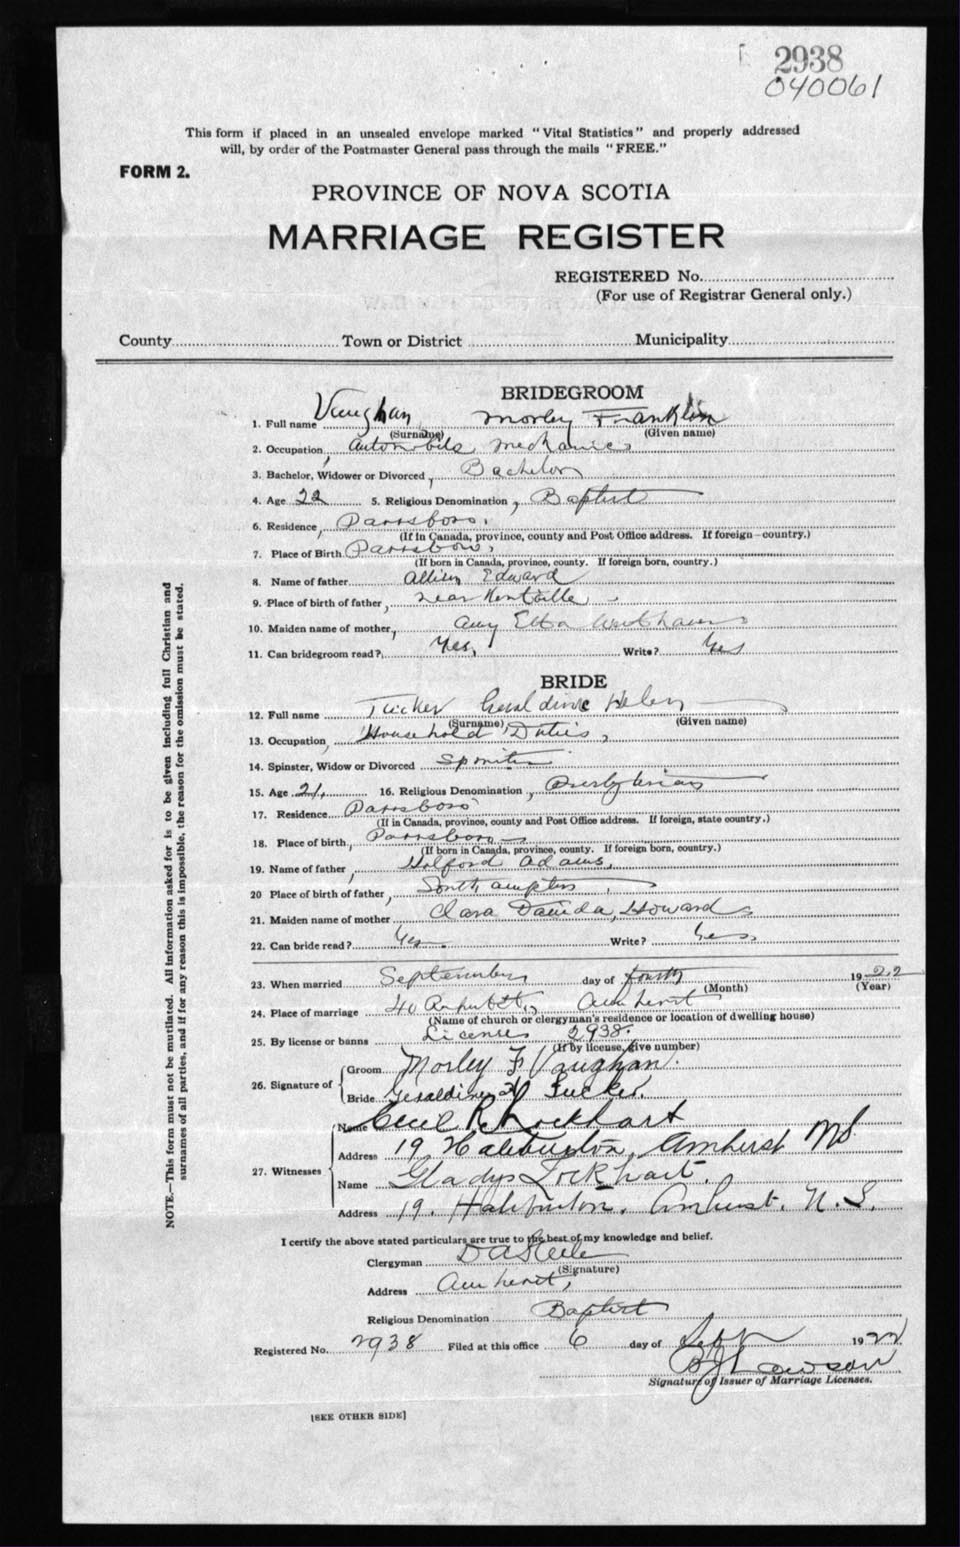 2938
040061
This form if placed in an unsealed envelope marked "Vital Statistics" and properly addressed
will, by order of the Postmaster General pass through the mails "FREE."
FORM 2.
PROVINCE OF NOVA SCOTIA
MARRIAGE REGISTER
REGISTERED No.
(For use of Registrar General only.)
County Town or District Municipality
BRIDEGROOM
1. Full name Vaughan Morley Franklin
(Surname) (Given name)
2. Occupation, Automobile Mechanic
3. Bachelor, Widower or Divorced, Bachelor
4. Age 22 5. Religious Denomination, Baptist
6. Residence, Parrsboro,
(If in Canada, province, county and Post Office address. If foreign—country.)
7. Place of Birth Parrsboro,
(If born in Canada, province, county. If foreign born, country.)
8. Name of father Edward
9. Place of birth of father, near Kentville
10. Maiden name of mother, Amy Etta
11. Can bridegroom read?, Yes, Write? Yes
BRIDE
12. Full name Tucker Geraldine Helen
(Surname) (Given name)
13. Occupation, Household Duties,
14. Spinster, Widow or Divorced Spinster
15. Age 21, 16. Religious Denomination, Presbyterian
17. Residence Parrsboro
(If in Canada, province, county and Post Office address. If foreign, state country.)
18. Place of birth, Parrsboro
(If born in Canada, province, county. If foreign born, country.)
19. Name of father, Holford Adams,
20 Place of birth of father, Southampton
21. Maiden name of mother Clara Howard
22. Can bride read? Yes Write? Yes,
23. When married September day of fourth 1922
(Month) (Year)
24. Place of marriage 40 Amherst
(Name of church or clergyman's residence or location of dwelling house)
25. By license or banns License 2938.
(If by license, give number)
26. Signature of
Groom Morley F Vaughan.
Bride Geraldine H Tucker.
27. Witnesses
Name Cecil R. Lockhart
Address 19 Haliburton, Amherst NS.
Name Gladys Lockhart.
Address 19. Haliburton. Amherst. N. S.
I certify the above stated particulars are true to the best of my knowledge and belief.
Clergyman D A Steele
(Signature)
Address Amherst,
Religious Denomination Baptist
Registered No. 2938 Filed at this office 6 day of Sept 1922
Lawson
Signature of Issuer of Marriage Licenses.
[SEE OTHER SIDE]
NOTE.—This form must not be mutilated. All information asked for is to be given including full Christian and
surnames of all parties, and if for any reason this is impossible, the reason for the omission must be stated.